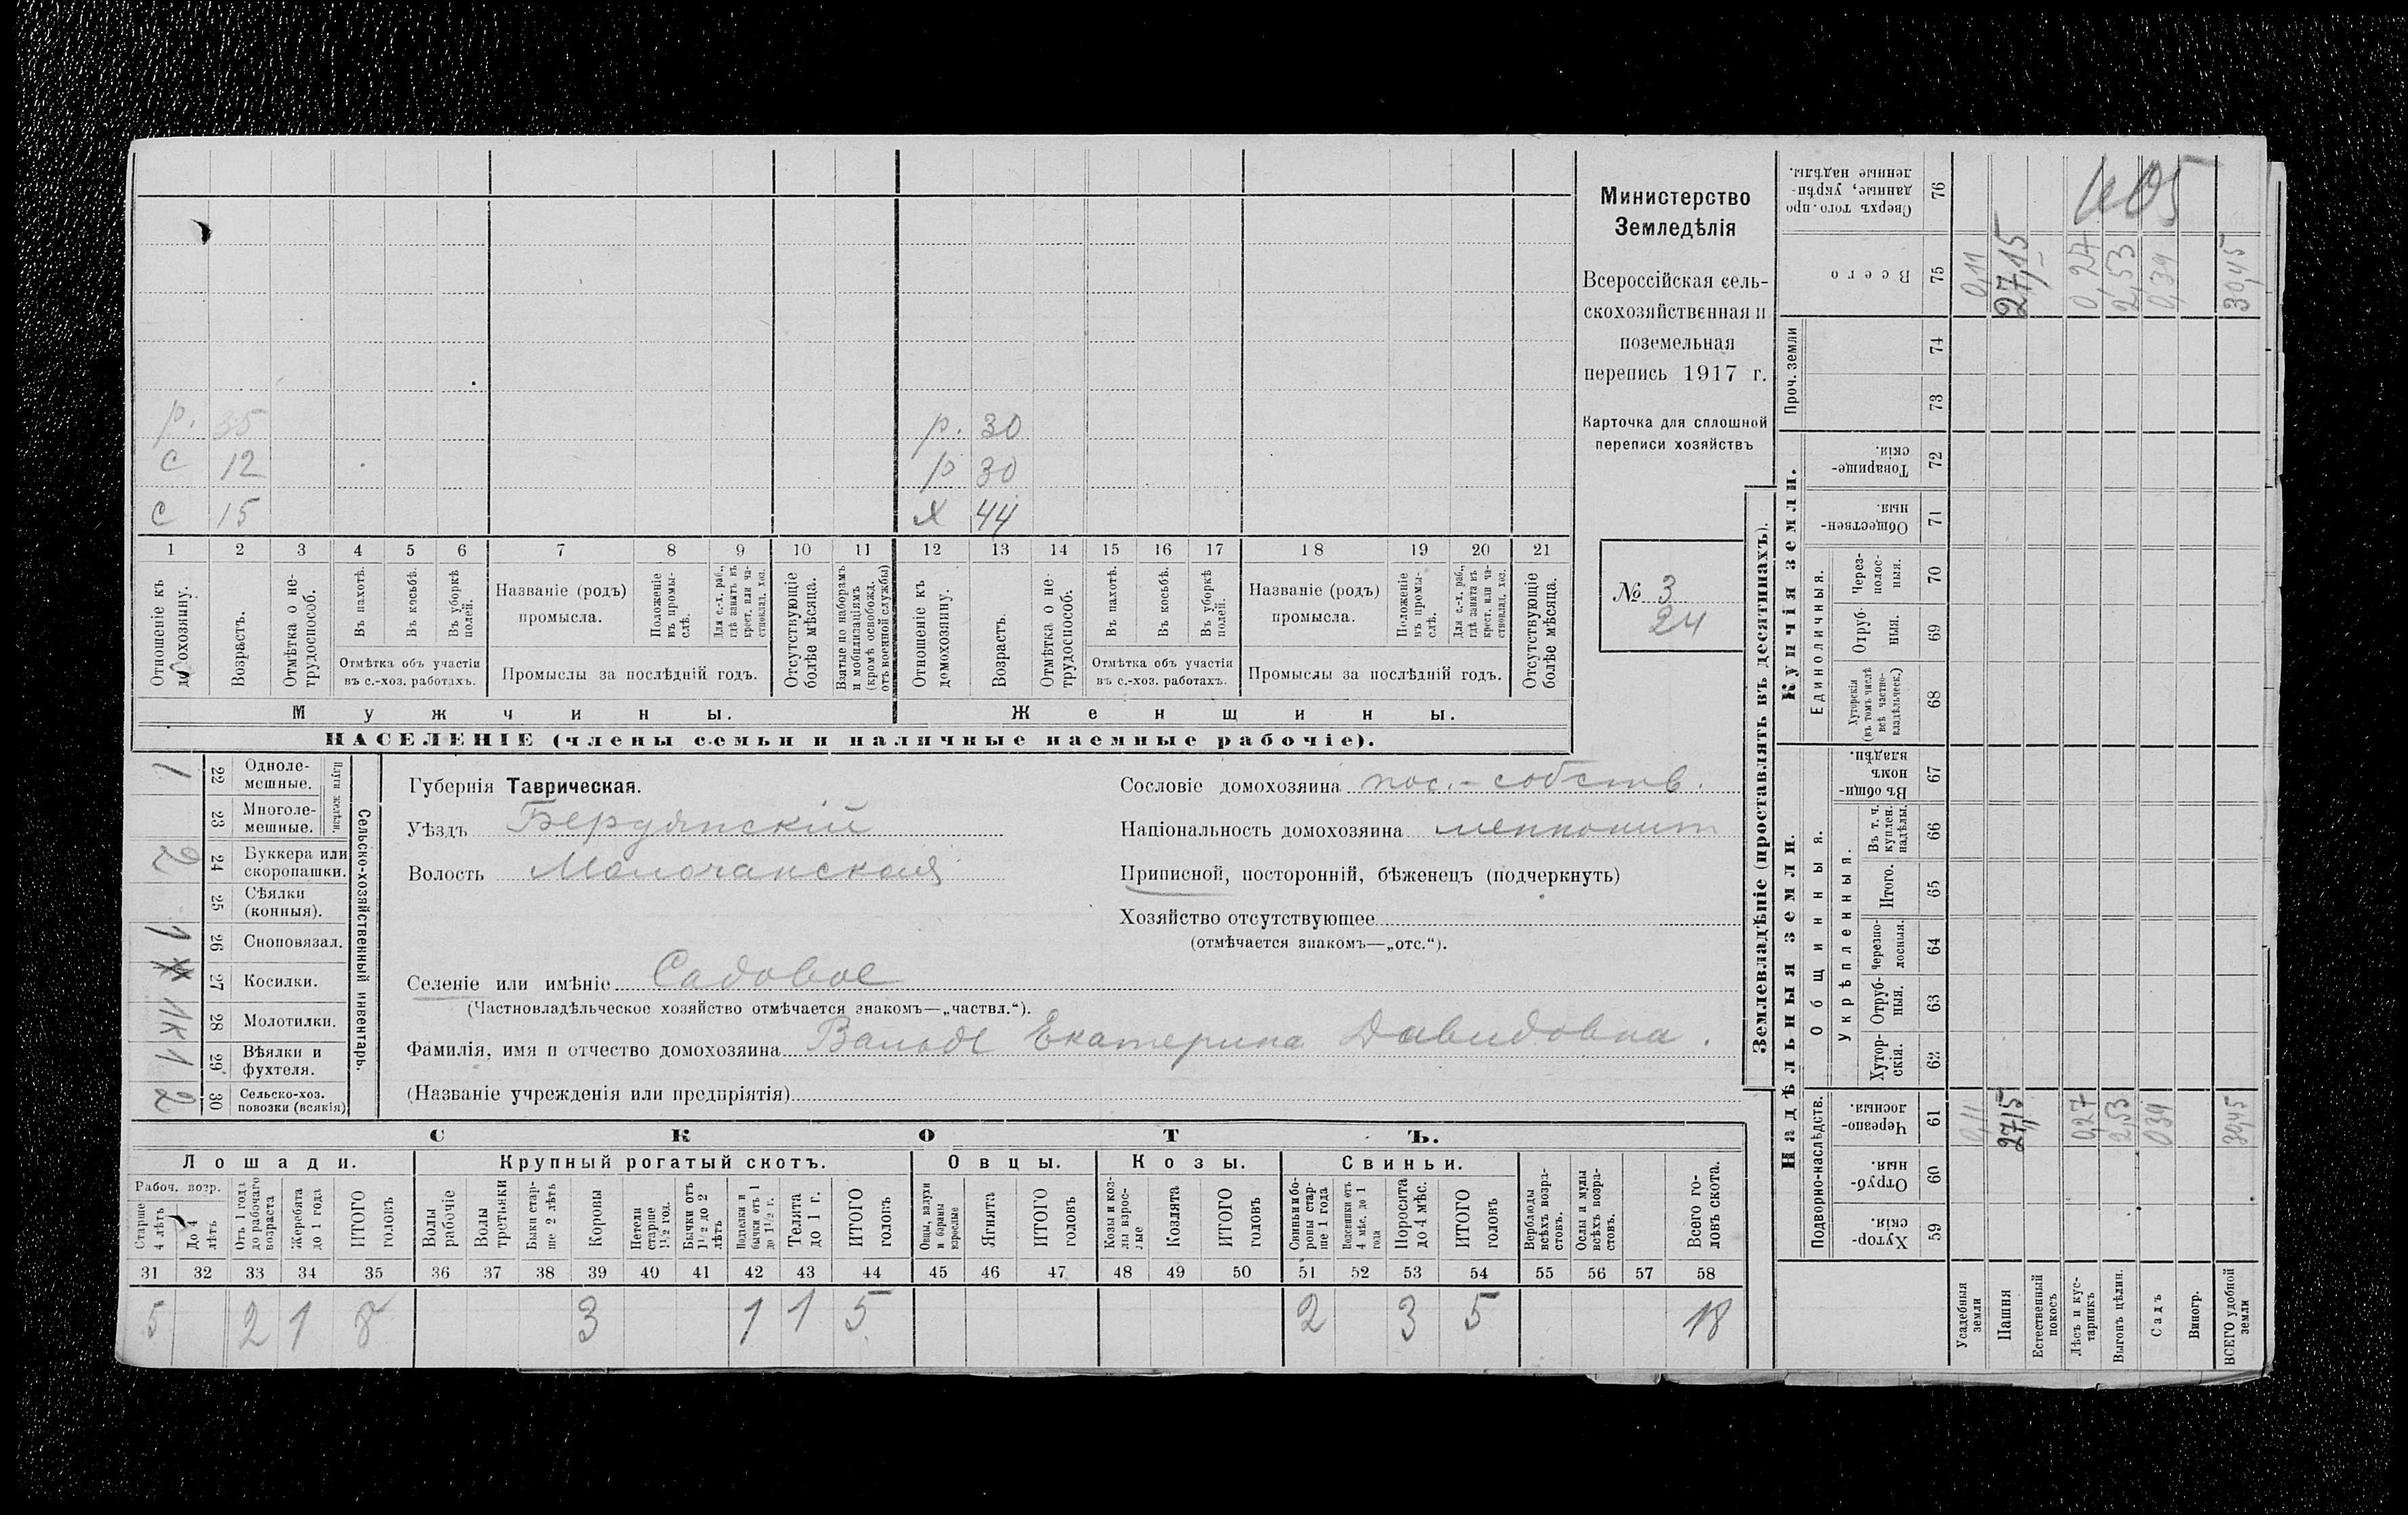 Министерство
Земледѣлія
Всероссійская сель-
скохозяйственная и
поземельная
перепись 1917 г.
Карточка для сплошной
переписи хозяйствъ
№ 3
24
р. 35
с 12
с 15
р. 30
р 30
х 44
1 2 3 4 5 6 7 8 9 10 11 12 13 14 15 16 17 18 19 20 21
Отношеніе къ домохозяину.
Возрастъ.
Отмѣтка о не-трудоспособ.
Въ пахотѣ.
Въ косьбѣ.
Въ уборкѣ полей.
Отмѣтка объ участіи
въ с.-хоз. работахъ.
Названіе (родъ)
промысла.
Положеніе въ промы-слѣ.
Для с.-х. раб., гдѣ занятъ въ крест. или ча-стновлад. хоз.
Промыслы за послѣдній годъ.
Отсутствующіе болѣе мѣсяца.
Взятые по наборамъ и мобилизаціямъ (кромѣ освобожд. отъ военной службы)
Отношеніе къ домохозяину.
Возрастъ.
Отмѣтка о не-трудоспособ.
Въ пахотѣ.
Въ косьбѣ.
Въ уборкѣ полей.
Отмѣтка объ участіи
въ с.-хоз. работахъ.
Названіе (родъ)
промысла.
Положеніе въ промы-слѣ.
Для с.-х. раб., гдѣ занята въ крест. или ча-стновлад. хоз.
Промыслы за послѣдній годъ.
Отсутствующіе болѣе мѣсяца.
Мужчины.
Женщины.
НАСЕЛЕНІЕ (члены семьи и наличные наемные рабочіе).
Сельско-хозяйственный инвентарь.
Плуги желѣзн.
1 22 Одноле-мешные.
23 Многоле-мешные.
2 24 Буккера или скоропашки.
25 Сѣялки (конныя).
1 26 Сноповязал.
27 Косилки.
1к 28 Молотилки.
1 29 Вѣялки и фухтеля.
2 30 Сельско-хоз. повозки (всякія)
Губернія Таврическая.
Уѣздъ Бердянскій
Волость Молочанская
Сословіе домохозяина пос.-собств.
Національность домохозяина меннонит
Приписной, посторонній, бѣженецъ (подчеркнуть)
Хозяйство отсутствующее
(отмѣчается знакомъ—„отс.“).
Селеніе или имѣніе Садовое
(Частновладѣльческое хозяйство отмѣчается знакомъ—„частвл.“).
Фамилія, имя и отчество домохозяина Вальде Екатерина Давидовна.
(Названіе учрежденія или предпріятія)
СКОТЪ.
Лошади.
Крупный рогатый скотъ.
Овцы.
Козы.
Свиньи.
Рабоч. возр.
Старше 4 лѣтъ
До 4 лѣтъ
Отъ 1 года до рабочаго возраста
Жеребята до 1 года
ИТОГО головъ
Волы рабочіе
Волы третьяки
Быки стар-ше 2 лѣтъ
Коровы
Нетели старше 1½ год.
Бычки отъ 1½ до 2 лѣтъ
Подтелки и бычки отъ 1 до 1½ г.
Телята до 1 г.
ИТОГО головъ
Овцы, валухи и бараны взрослые
Ягнята
ИТОГО головъ
Козы и коз-лы взрос-лые
Козлята
ИТОГО головъ
Свиньи и бо-ровы стар-ше 1 года
Подсвинки отъ 4 мѣс. до 1 года
Поросята до 4 мѣс.
ИТОГО головъ
Верблюды всѣхъ возра-стовъ.
Ослы и мулы всѣхъ возра-стовъ.
Всего го-ловъ скота.
31 32 33 34 35 36 37 38 39 40 41 42 43 44 45 46 47 48 49 50 51 52 53 54 55 56 57 58
5 2 1 8 3 1 1 5 2 3 5 18
Землевладѣніе (проставлять въ десятинахъ).
Купчія земли.
Надѣльныя земли.
Проч. земли
Единоличныя.
Общинныя.
Укрѣпленныя.
Подворно-наслѣдств.
Сверхъ того-про данные, укрѣп-ленные надѣлы. 76
Всего 75
74
73
Товарище-скія. 72
Обществен-ныя. 71
Через-полос-ныя. 70
Отруб-ныя. 69
Хуторскія (въ томъ числѣ всѣ частно-владѣльческ.) 68
Въ общи-номъ владѣн. 67
Въ т. ч. куплен. надѣлы. 66
Итого. 65
Черезпо-лосныя. 64
Отруб-ныя. 63
Хутор-скія. 62
Черезпо-лосныя. 61
Отруб-ныя. 60
Хутор-скія. 59
Усадебныя земли 0,11 0,11
Пашня 27,15 27,15
Естественный покосъ
Лѣсъ и кус-тарникъ 0,27 0,27
Выгонъ цѣлин. 2,53 2,53
Садъ 0,39 0,39
Виногр.
ВСЕГО удобной земли 30,45 30,45